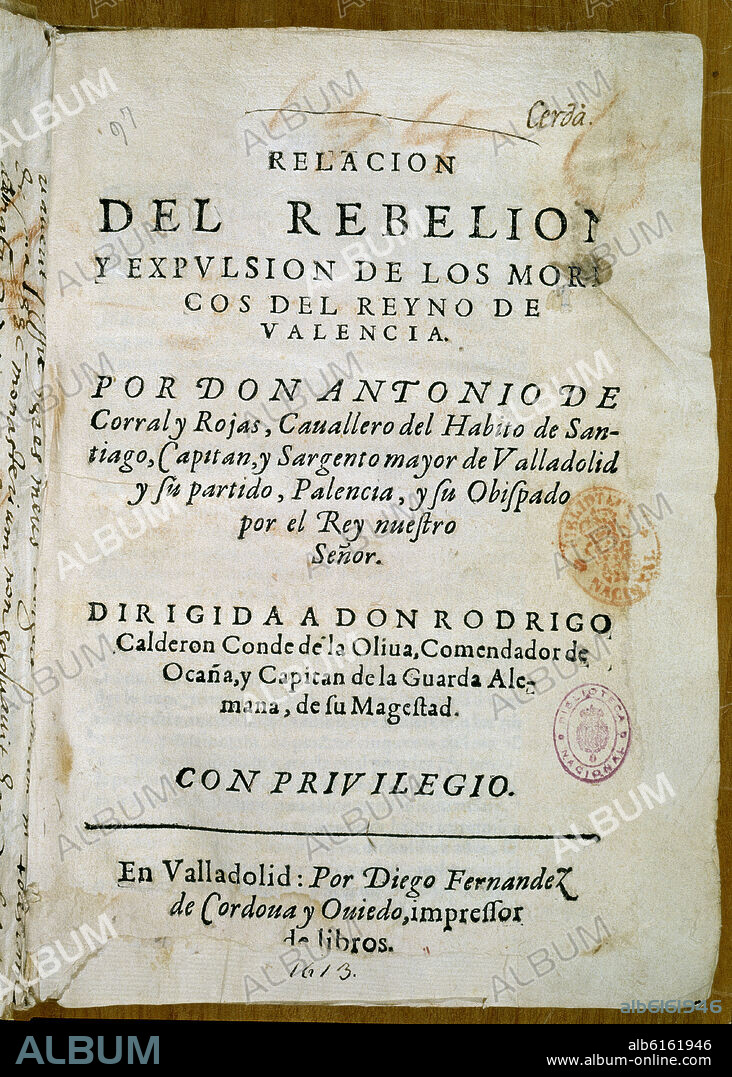 Cerdà.
RELACION
DEL REBELION
Y EXPVLSION DE LOS MORIS
COS DEL REYNO DE
VALENCIA.
POR DON ANTONIO DE
Corral y Rojas, Cauallero del Habito de San-
tiago, Capitan, y Sargento mayor de Valladolid
y ſu partido, Palencia, y ſu Obiſpado
por el Rey nueſtro
Señor.
DIRIGIDA A DON RODRIGO
Calderon Conde de la Oliua, Comendador de
Ocaña, y Capitan de la Guarda Ale-
mana, de ſu Mageſtad.
CON PRIVILEGIO.
En Valladolid: Por Diego Fernandez
de Cordoua y Ouiedo, impreſſor
de libros.
1613.
BIBLIOTECA
NACIONAL
BIBLIOTECA
NACIONAL
ALBUM
alb6161946
ALBUM
alb6161946
www.album-online.com